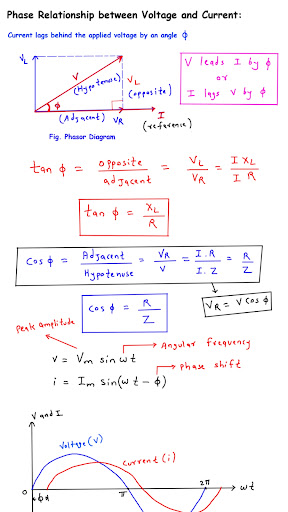 Phase Relationship between Voltage and Current:
Current lags behind the applied voltage by an angle ϕ
V_L
V
(Hypotenuse)
V_L
(opposite)
ϕ
(Adjacent) V_R
I
(reference)
Fig. Phasor Diagram
V leads I by ϕ
or
I lags V by ϕ
tan ϕ = opposite / adjacent = V_L / V_R = I X_L / I R
tan ϕ = X_L / R
cos ϕ = Adjacent / Hypotenuse = V_R / V = I.R / I.Z = R / Z
cos ϕ = R / Z
V_R = V cos ϕ
Peak amplitude
Angular frequency
v = V_m sin ωt
phase shift
i = I_m sin(ωt - ϕ)
V and I
Voltage (V)
Current (i)
0
ϕ
π
2π
ωt